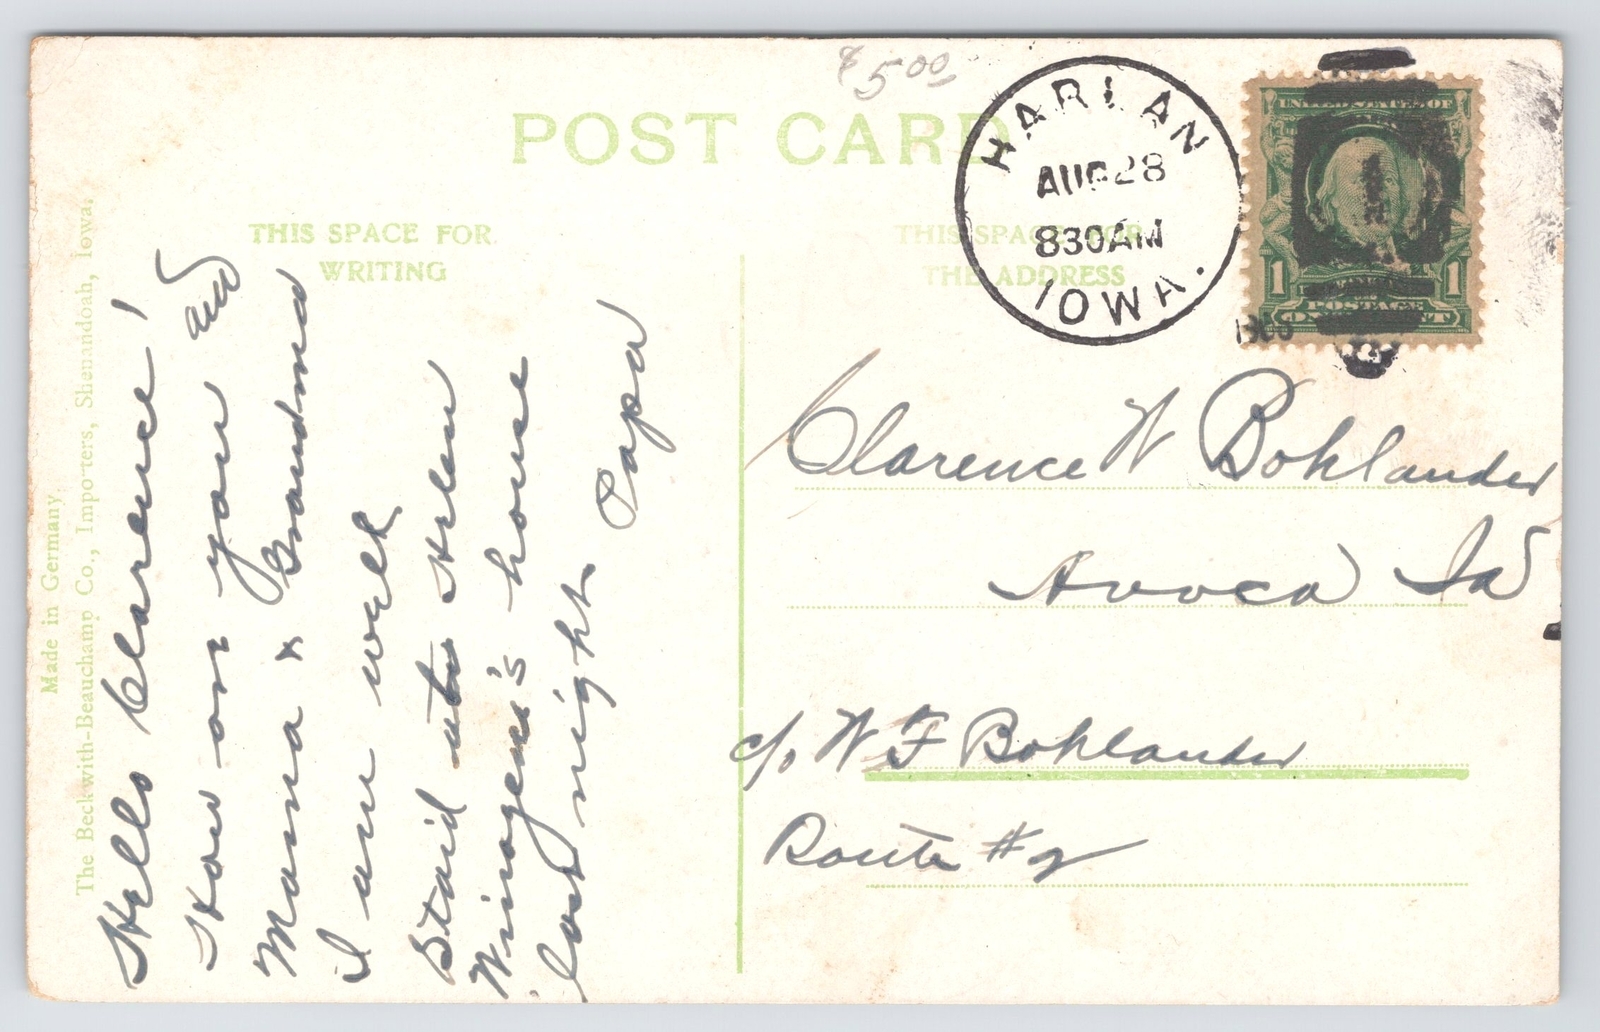 $5.00
POST CARD
THIS SPACE FOR
WRITING
THIS SPACE FOR
THE ADDRESS
HARLAN
AUG 28
830AM
IOWA.
UNITED STATES OF
1 1
POSTAGE
ONE CENT
Made in Germany.
The Beckwith-Beauchamp Co., Importers, Shenandoah, Iowa.
Hello Clarence!
How are you and
Mama & Grandma
I am well
Staid at Helen
Winogene's house
last night.
Papa
Clarence W Bohlander
Avoca Ia
c/o W F Bohlander
Route #2